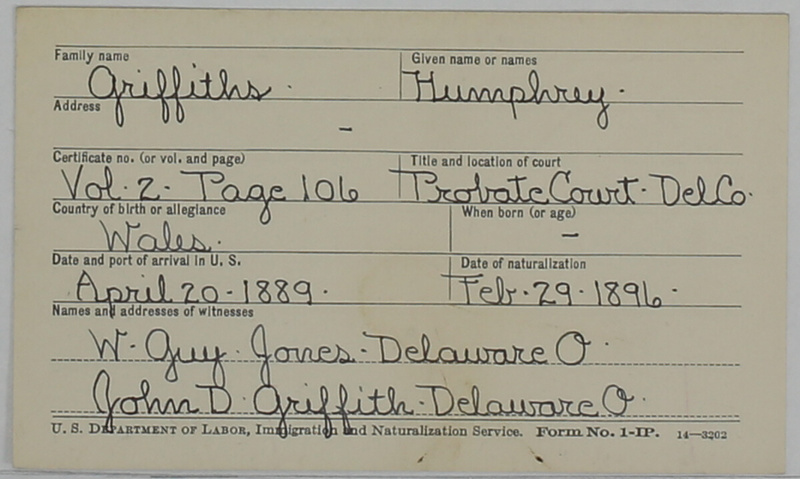 Family name Given name or names
Griffiths. Humphrey.
Address
-
Certificate no. (or vol. and page) Title and location of court
Vol. 2. Page 106 Probate Court. Del Co.
Country of birth or allegiance When born (or age)
Wales. -
Date and port of arrival in U. S. Date of naturalization
April 20-1889. Feb. 29-1896.
Names and addresses of witnesses
W. Guy. Jones-Delaware O.
John D. Griffith-Delaware O.
U. S. DEPARTMENT OF LABOR, Immigration and Naturalization Service. Form No. 1-IP. 14—3202